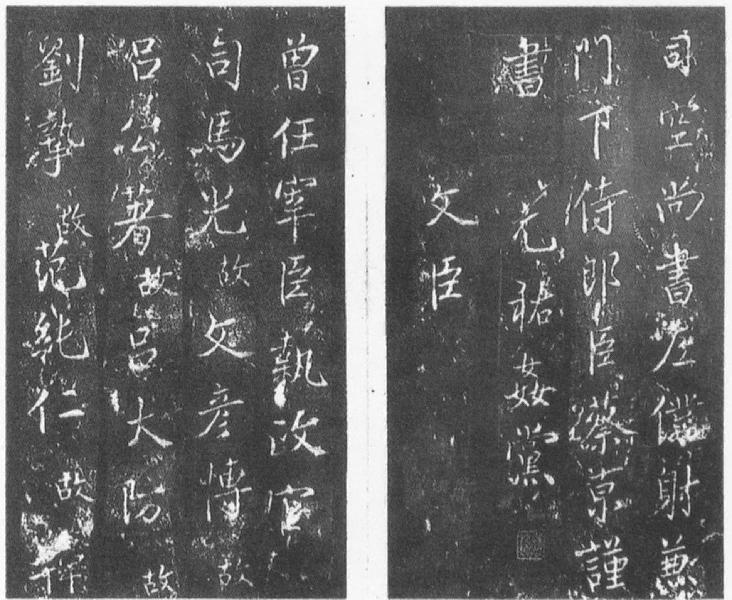 司空尚書左僕射兼
門下侍郎臣蔡京謹
書
元祐姦黨
文臣
曾任宰臣執政官
司馬光故文彥博故
呂公著故呂大防故
劉摯故范純仁故